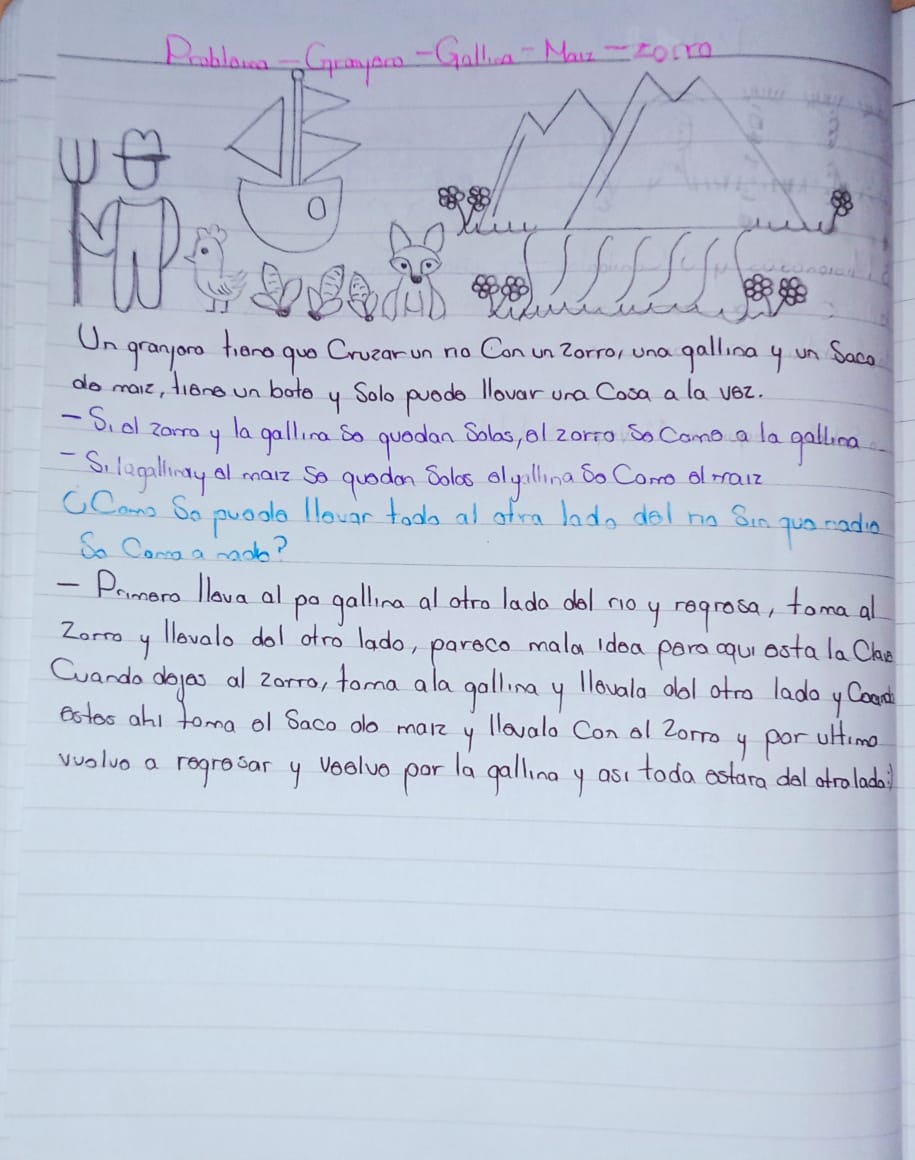 Problema - Granjero - Gallina - Maiz - zorro
Un granjero tiene que Cruzar un rio Con un Zorro, una gallina y un Saco
de maiz, tiene un bote y Solo puede llevar una Cosa a la vez.
- Si el zorro y la gallina se quedan Solas, el zorro se Come a la gallina
- Si la gallina y el maiz se quedan Solos el gallina Se Come el maiz
¿Como Se puede llevar todo al otro lado del rio Sin que nadie
Se Coma a nada?
- Primero lleva al pa gallina al otro lado del rio y regresa, toma al
Zorro y llevalo del otro lado, parece mala idea pero aqui esta la Clave
Cuando dejes al zorro, toma a la gallina y llevala del otro lado y Cuando
estes ahi toma el Saco de maiz y llevalo Con el Zorro y por ultimo
vuelve a regresar y vuelve por la gallina y asi todo estara del otro lado:)